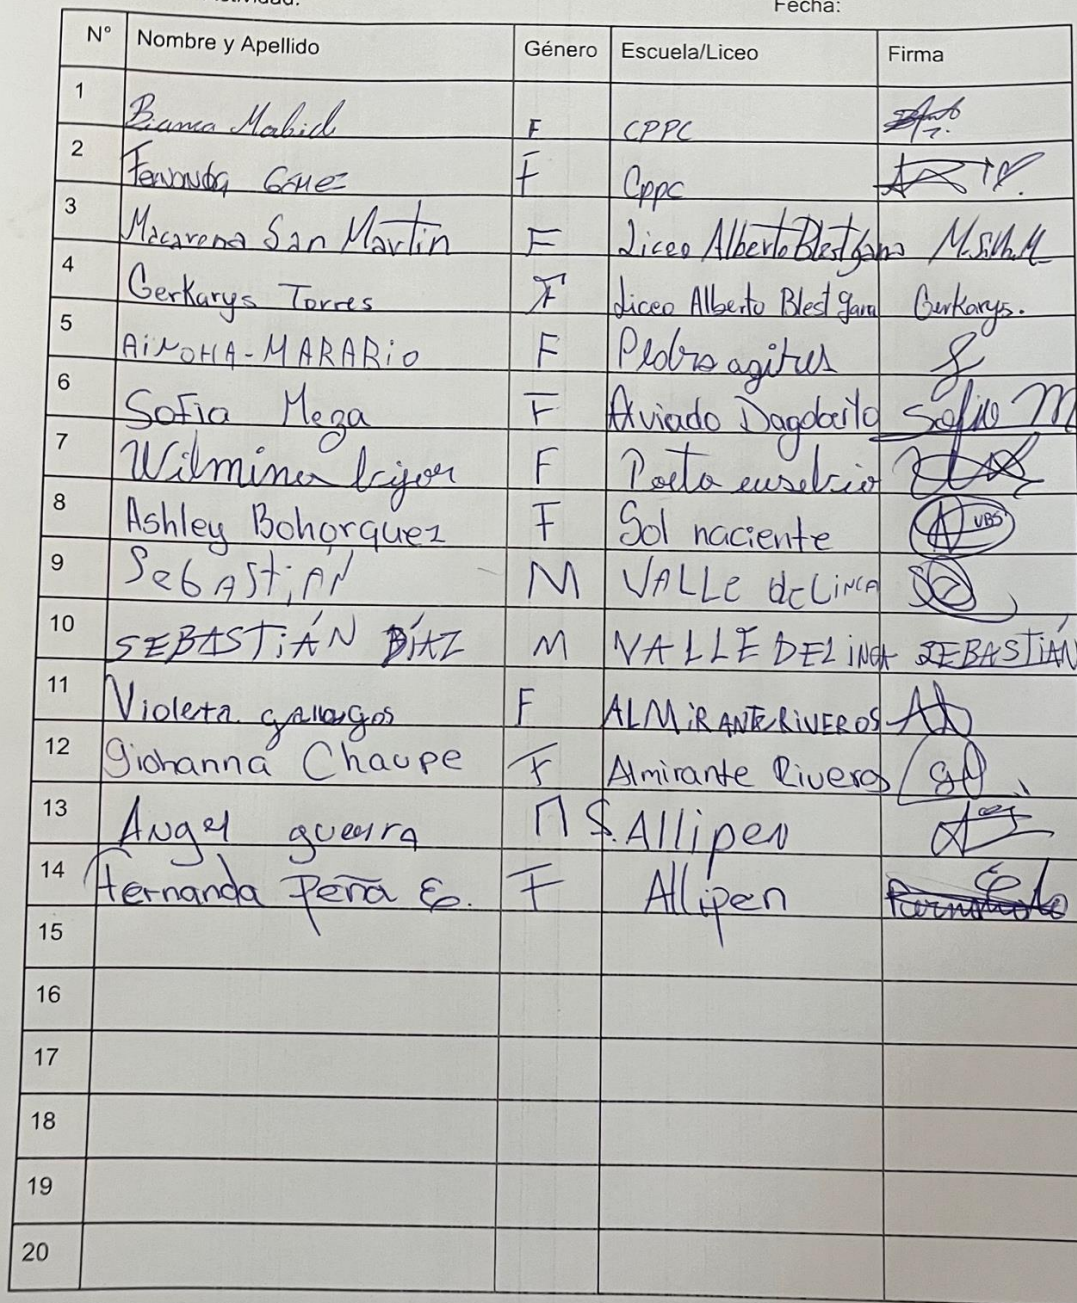 Fecha:
N° Nombre y Apellido Género Escuela/Liceo Firma
1 Bianca Madrid F CPPC
2 Fernanda F Cppc
3 Macarena San Martin F Liceo Alberto Blest gana M.S.M.M
4 Gerkarys Torres F Liceo Alberto Blest gana Gerkarys.
5 AiNOHA-MARARiO F Pedro
6 Sofia Meza F Aviado Dagoberto Sofia M
7 Wilmina F Poeta eusebio
8 Ashley Bohorquez F Sol naciente
9 SebASTiAN M VALLE deLiNCA
10 SEBASTiÁN DÍAZ M VALLE DEL iNCA SEBASTIÁN
11 Violeta gallegos F ALMiRANTE RiVEROS
12 Giohanna Chaupe F Almirante Riveros
13 Angel guerra M S. Allipen
14 Fernanda Peña E. F Allipen
15
16
17
18
19
20